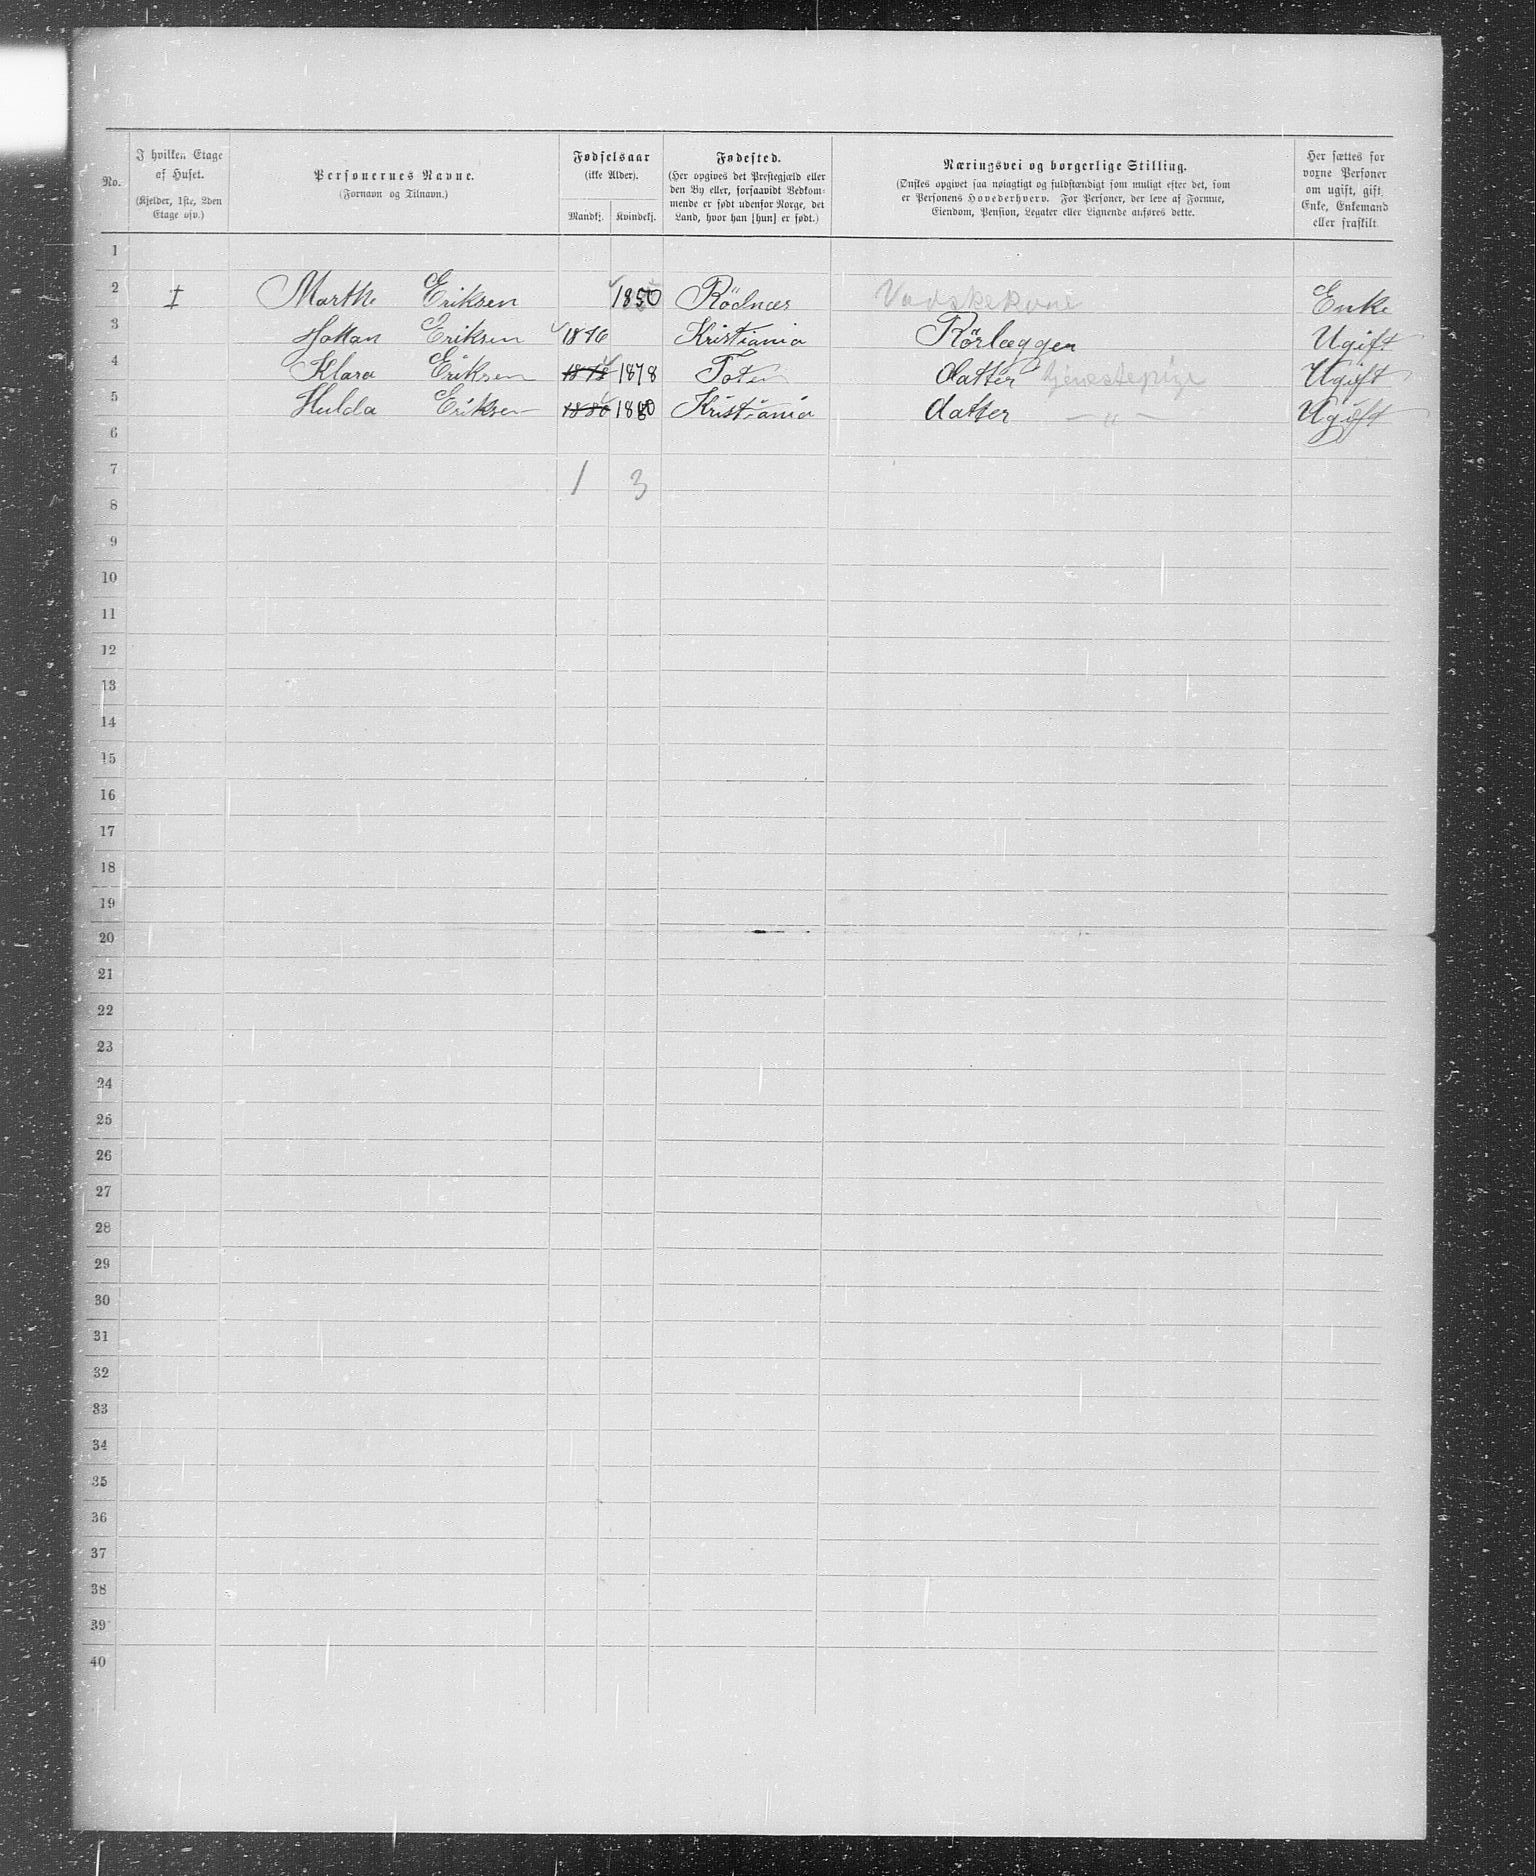 No.
I hvilken Etage
af Huset.
(Kjelder, 1ste, 2den
Etage osv.)
Personernes Navne.
(Fornavn og Tilnavn.)
Fødselsaar
(ikke Alder).
Mandkj. Kvindekj.
Fødested.
(Her opgives det Prestegjæld eller
den By eller, forsaavidt Vedkom-
mende er født udenfor Norge, det
Land, hvor han [hun] er født.)
Næringsvei og borgerlige Stilling.
(Ønskes opgivet saa nøiagtigt og fuldstændigt som muligt efter det, som
er Personens Hovederhverv. For Personer, der leve af Formue,
Eiendom, Pension, Legater eller Lignende anføres dette.
Her sættes for
voxne Personer
om ugift, gift,
Enke, Enkemand
eller fraskilt.
1
2 I Marthe Eriksen 1850 Rödnæs Vadskekone Enke
3 Eriksen 1876 Kristiania Rörlægger Ugift
4 Klara Eriksen 1878 1878 Toten datter tjenestepige Ugift
5 Hulda Eriksen 1880 1880 Kristiania datter — „ — Ugift
6
7 1 3
8
9
10
11
12
13
14
15
16
17
18
19
20
21
22
23
24
25
26
27
28
29
30
31
32
33
34
35
36
37
38
39
40